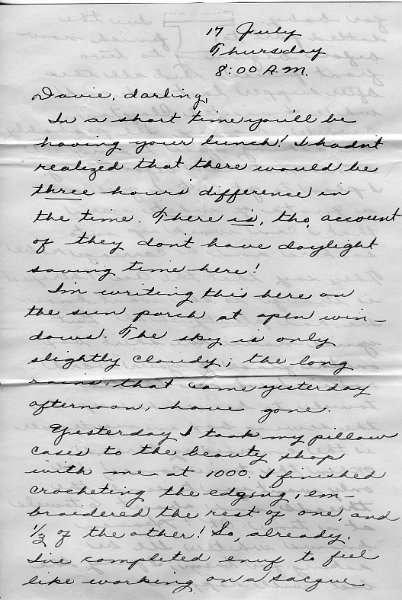 17 July
Thursday
8:00 A.M.
Davie, darling,
In a short time you'll be
having your lunch! I hadn't
realized that there would be
three hours difference in
the time. There is, tho, account
of they don't have daylight
saving time here!
I'm writing this here on
the sun porch at open win-
dows. The sky is only
slightly cloudy; the long
rains, that came yesterday
afternoon, have gone.
Yesterday I took my pillow
cases to the beauty shop
with me at 1000. I finished
crocheting the edging, em-
broidered the rest of one, and
1/3 of the other! So, already,
I've completed enuf to feel
like working on a sacque